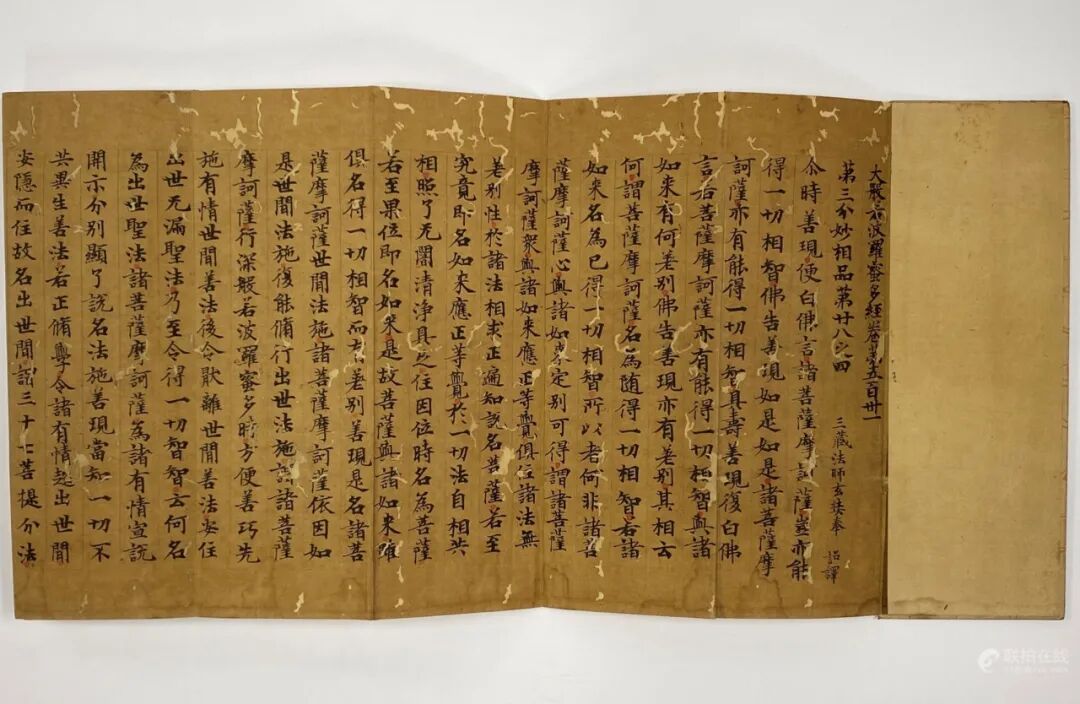 大般若波羅蜜多經卷第五百卅一
第三分妙相品第廿八之四 三藏法師玄奘奉 詔譯
尒時善現便白佛言諸菩薩摩訶薩豈亦能
得一切相智佛告善現如是如是諸菩薩摩
訶薩亦有能得一切相智具壽善現復白佛
言若菩薩摩訶薩亦有能得一切相智與諸
如來有何差別佛告善現亦有差別其相云
何謂菩薩摩訶薩名為随得一切相智若諸
如来名為已得一切相智所以者何非諸菩
薩摩訶薩心與諸如來定別可得謂諸菩薩
摩訶薩衆與諸如來應正等覺俱住諸法無
差別性於諸法相求正遍知說名菩薩若至
究竟即名如來應正等覺於一切法自相共
相照了无闇清淨具足住因位時名為菩薩
若至果位即名如來是故菩薩與諸如來雖
俱名得一切相智而有差別善現是名諸菩
薩摩訶薩世間法施諸菩薩摩訶薩依因如
是世間法施復能脩行出世法施謂諸菩薩
摩訶薩行深般若波羅蜜多時方便善巧先
施有情世間善法後令猒離世間善法安住
出世无漏聖法乃至令得一切智智云何名
為出世聖法諸菩薩摩訶薩為諸有情宣說
開示分別顯了說名法施善現當知一切不
共異生善法若正脩學令諸有情超出世間
安隱而住故名出世間謂三十七菩提分法
联拍在线